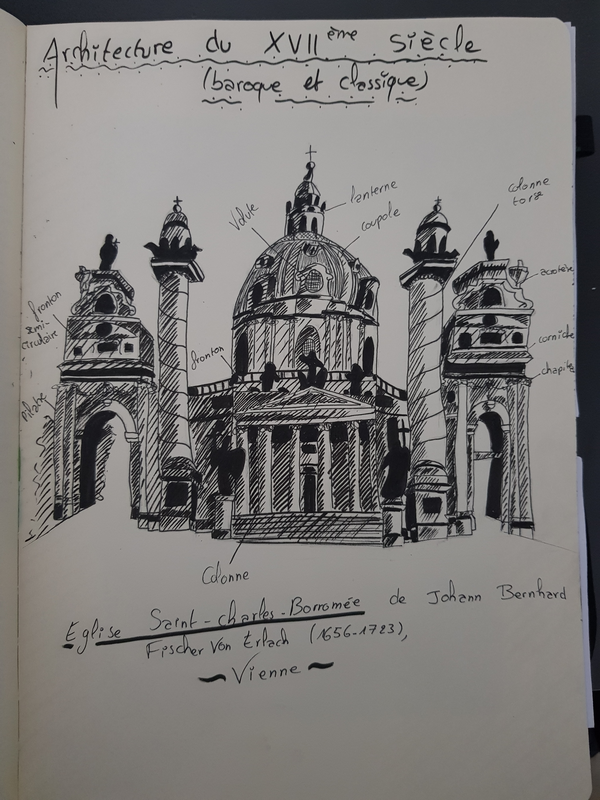 Architecture du XVIIème siècle
(baroque et classique)
lanterne
Volute
coupole
colonne
torse
acrotère
fronton
semi-
circulaire
fronton
corniche
chapit
Pilastre
Colonne
Eglise Saint-charles-Borromée de Johann Bernhard
Fischer Von Erlach (1656-1723),
~ Vienne ~